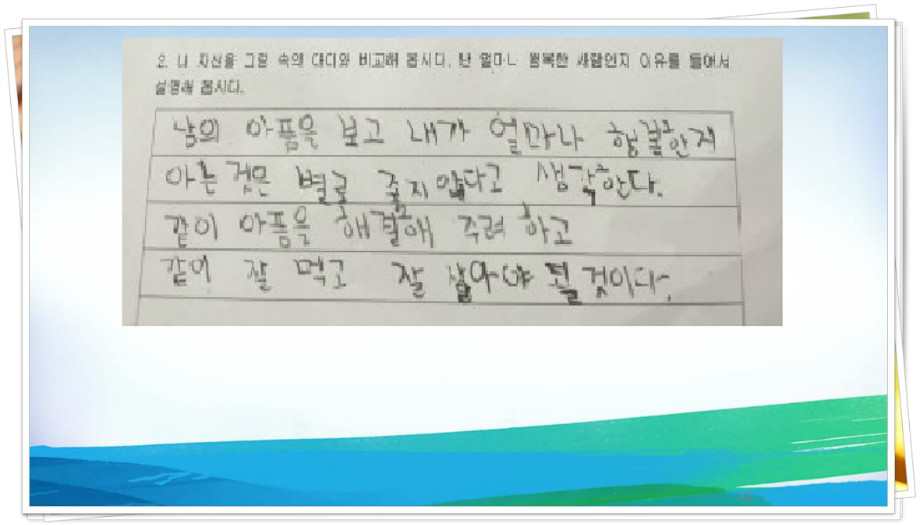 2. 나 자신을 그림 속의 대디와 비교해 봅시다. 난 얼마나 행복한 사람인지 이유를 들어서
설명해 봅시다.
남의 아픔을 보고 내가 얼마나 행복한지
아는 것은 별로 좋지 않다고 생각한다.
같이 아픔을 해결해 주려 하고
같이 잘 먹고 잘 살아야 될 것이다.